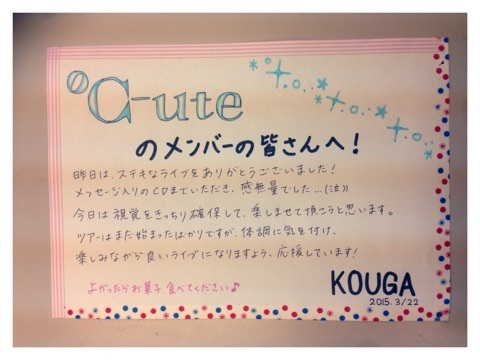 ℃-ute
のメンバーの皆さんへ!
昨日は、ステキなライブをありがとうございました!
メッセージ入りのCDまでいただき、感無量でした…(泣)
今日は視覚をきっちり確保して、楽しませて頂こうと思います。
ツアーはまだ始まったばかりですが、体調に気を付け、
楽しみながら良いライブになりますよう、応援しています!
よかったらお菓子食べてください♪
KOUGA
2015.3/22